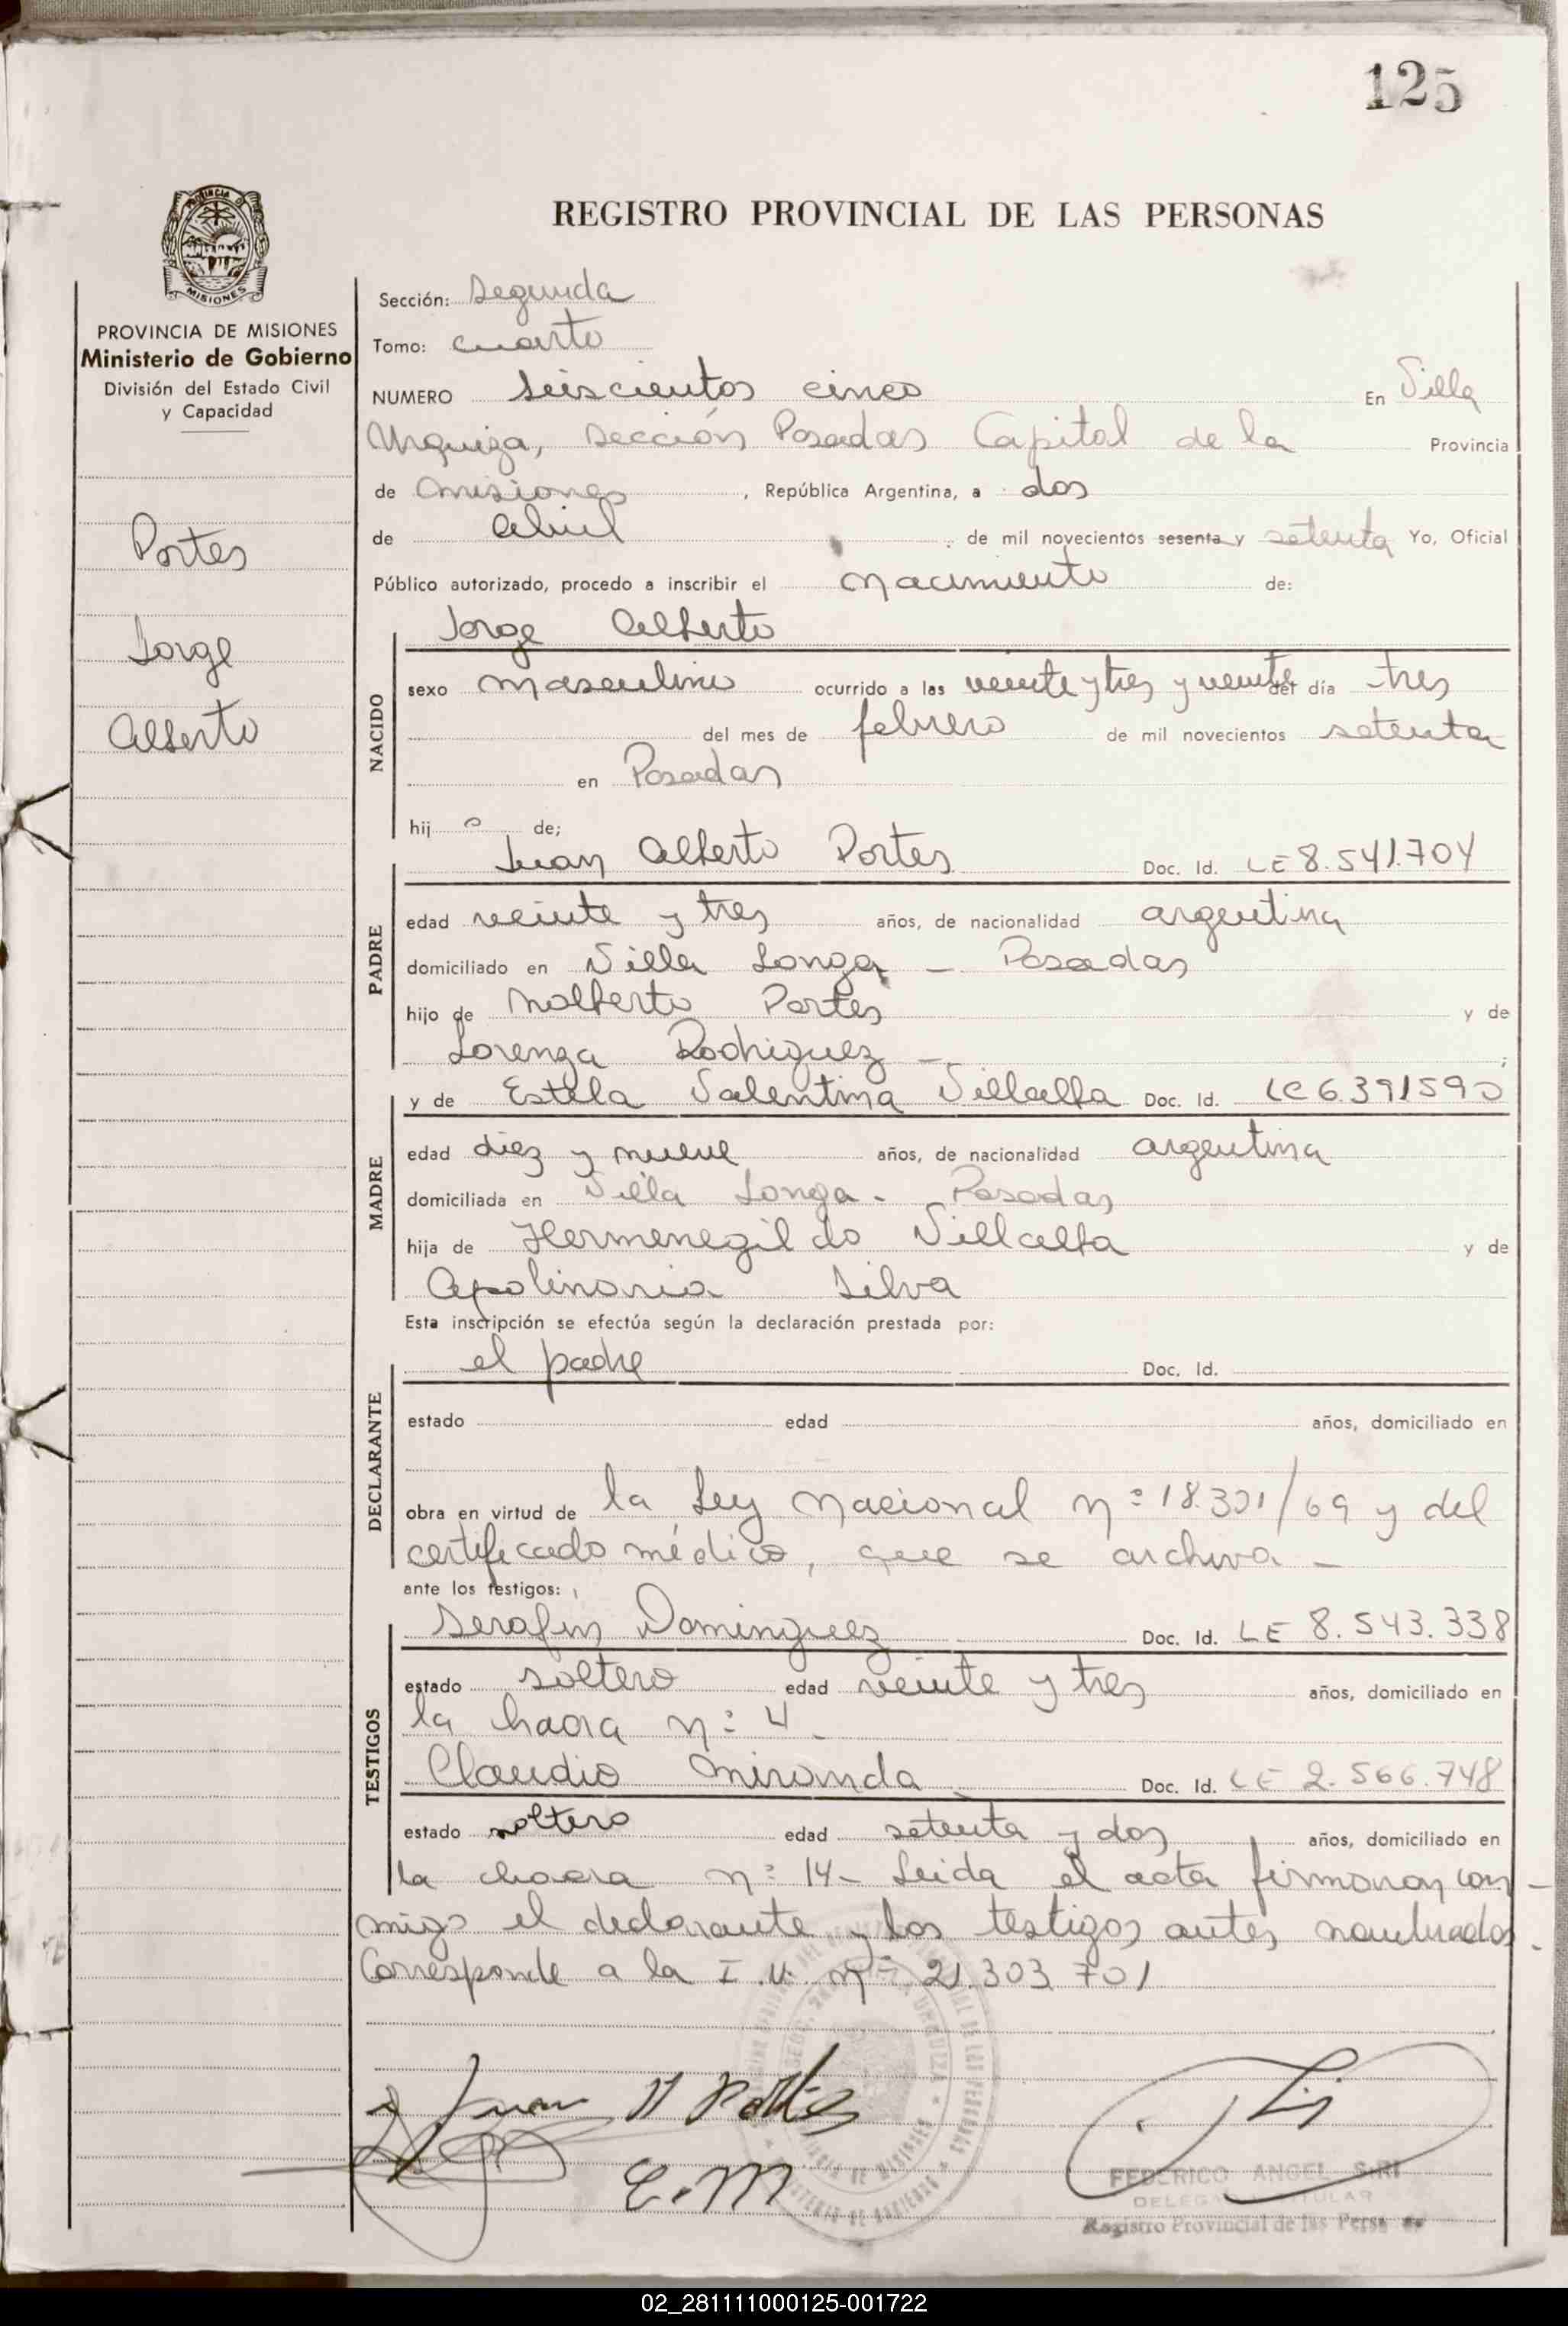 125
REGISTRO PROVINCIAL DE LAS PERSONAS
PROVINCIA DE
MISIONES
PROVINCIA DE MISIONES
Ministerio de Gobierno
División del Estado Civil
y Capacidad
Portes
Jorge
Alberto
Sección: Segunda
Tomo: cuarto
NUMERO Seiscientos cinco En Villa
Urquiza, sección Posadas Capital de la Provincia
de Misiones, República Argentina, a dos
de abril de mil novecientos sesenta y setenta Yo, Oficial
Público autorizado, procedo a inscribir el nacimiento de:
NACIDO
Jorge Alberto
sexo masculino ocurrido a las veinte y tres y veinte del día tres
del mes de febrero de mil novecientos setenta
en Posadas
hij o de;
PADRE
Juan Alberto Portes Doc. Id. LE 8.541.704
edad veinte y tres años, de nacionalidad argentina
domiciliado en Villa Longa - Posadas
hijo de Nolberto Portes y de
Lorenza Rodriguez - ;
MADRE
y de Estela Valentina Villalba Doc. Id. LC 6.391590
edad diez y nueve años, de nacionalidad argentina
domiciliada en Villa Longa - Posadas
hija de Hermenegildo Villalba y de
Apolinaria Silva
Esta inscripción se efectúa según la declaración prestada por:
DECLARANTE
el padre Doc. Id.
estado edad años, domiciliado en
obra en virtud de la Ley Nacional nº 18.321/69 y del
certificado médico, que se archiva -
ante los testigos:
TESTIGOS
Serafin Dominguez Doc. Id. LE 8.543.338
estado soltero edad veinte y tres años, domiciliado en
la chacra nº 4 -
Claudio Miranda Doc. Id. LE 2.566.748
estado soltero edad setenta y dos años, domiciliado en
la chacra nº 14 - Leida el acta firmaron con-
migo el declarante y los testigos antes nombrados.
Corresponde a la I.U. nº 21.303.701
Juan A Portes
C.M
FEDERICO ANGEL SIRI
DELEGADO TITULAR
Registro Provincial de las Personas
02_281111000125-001722